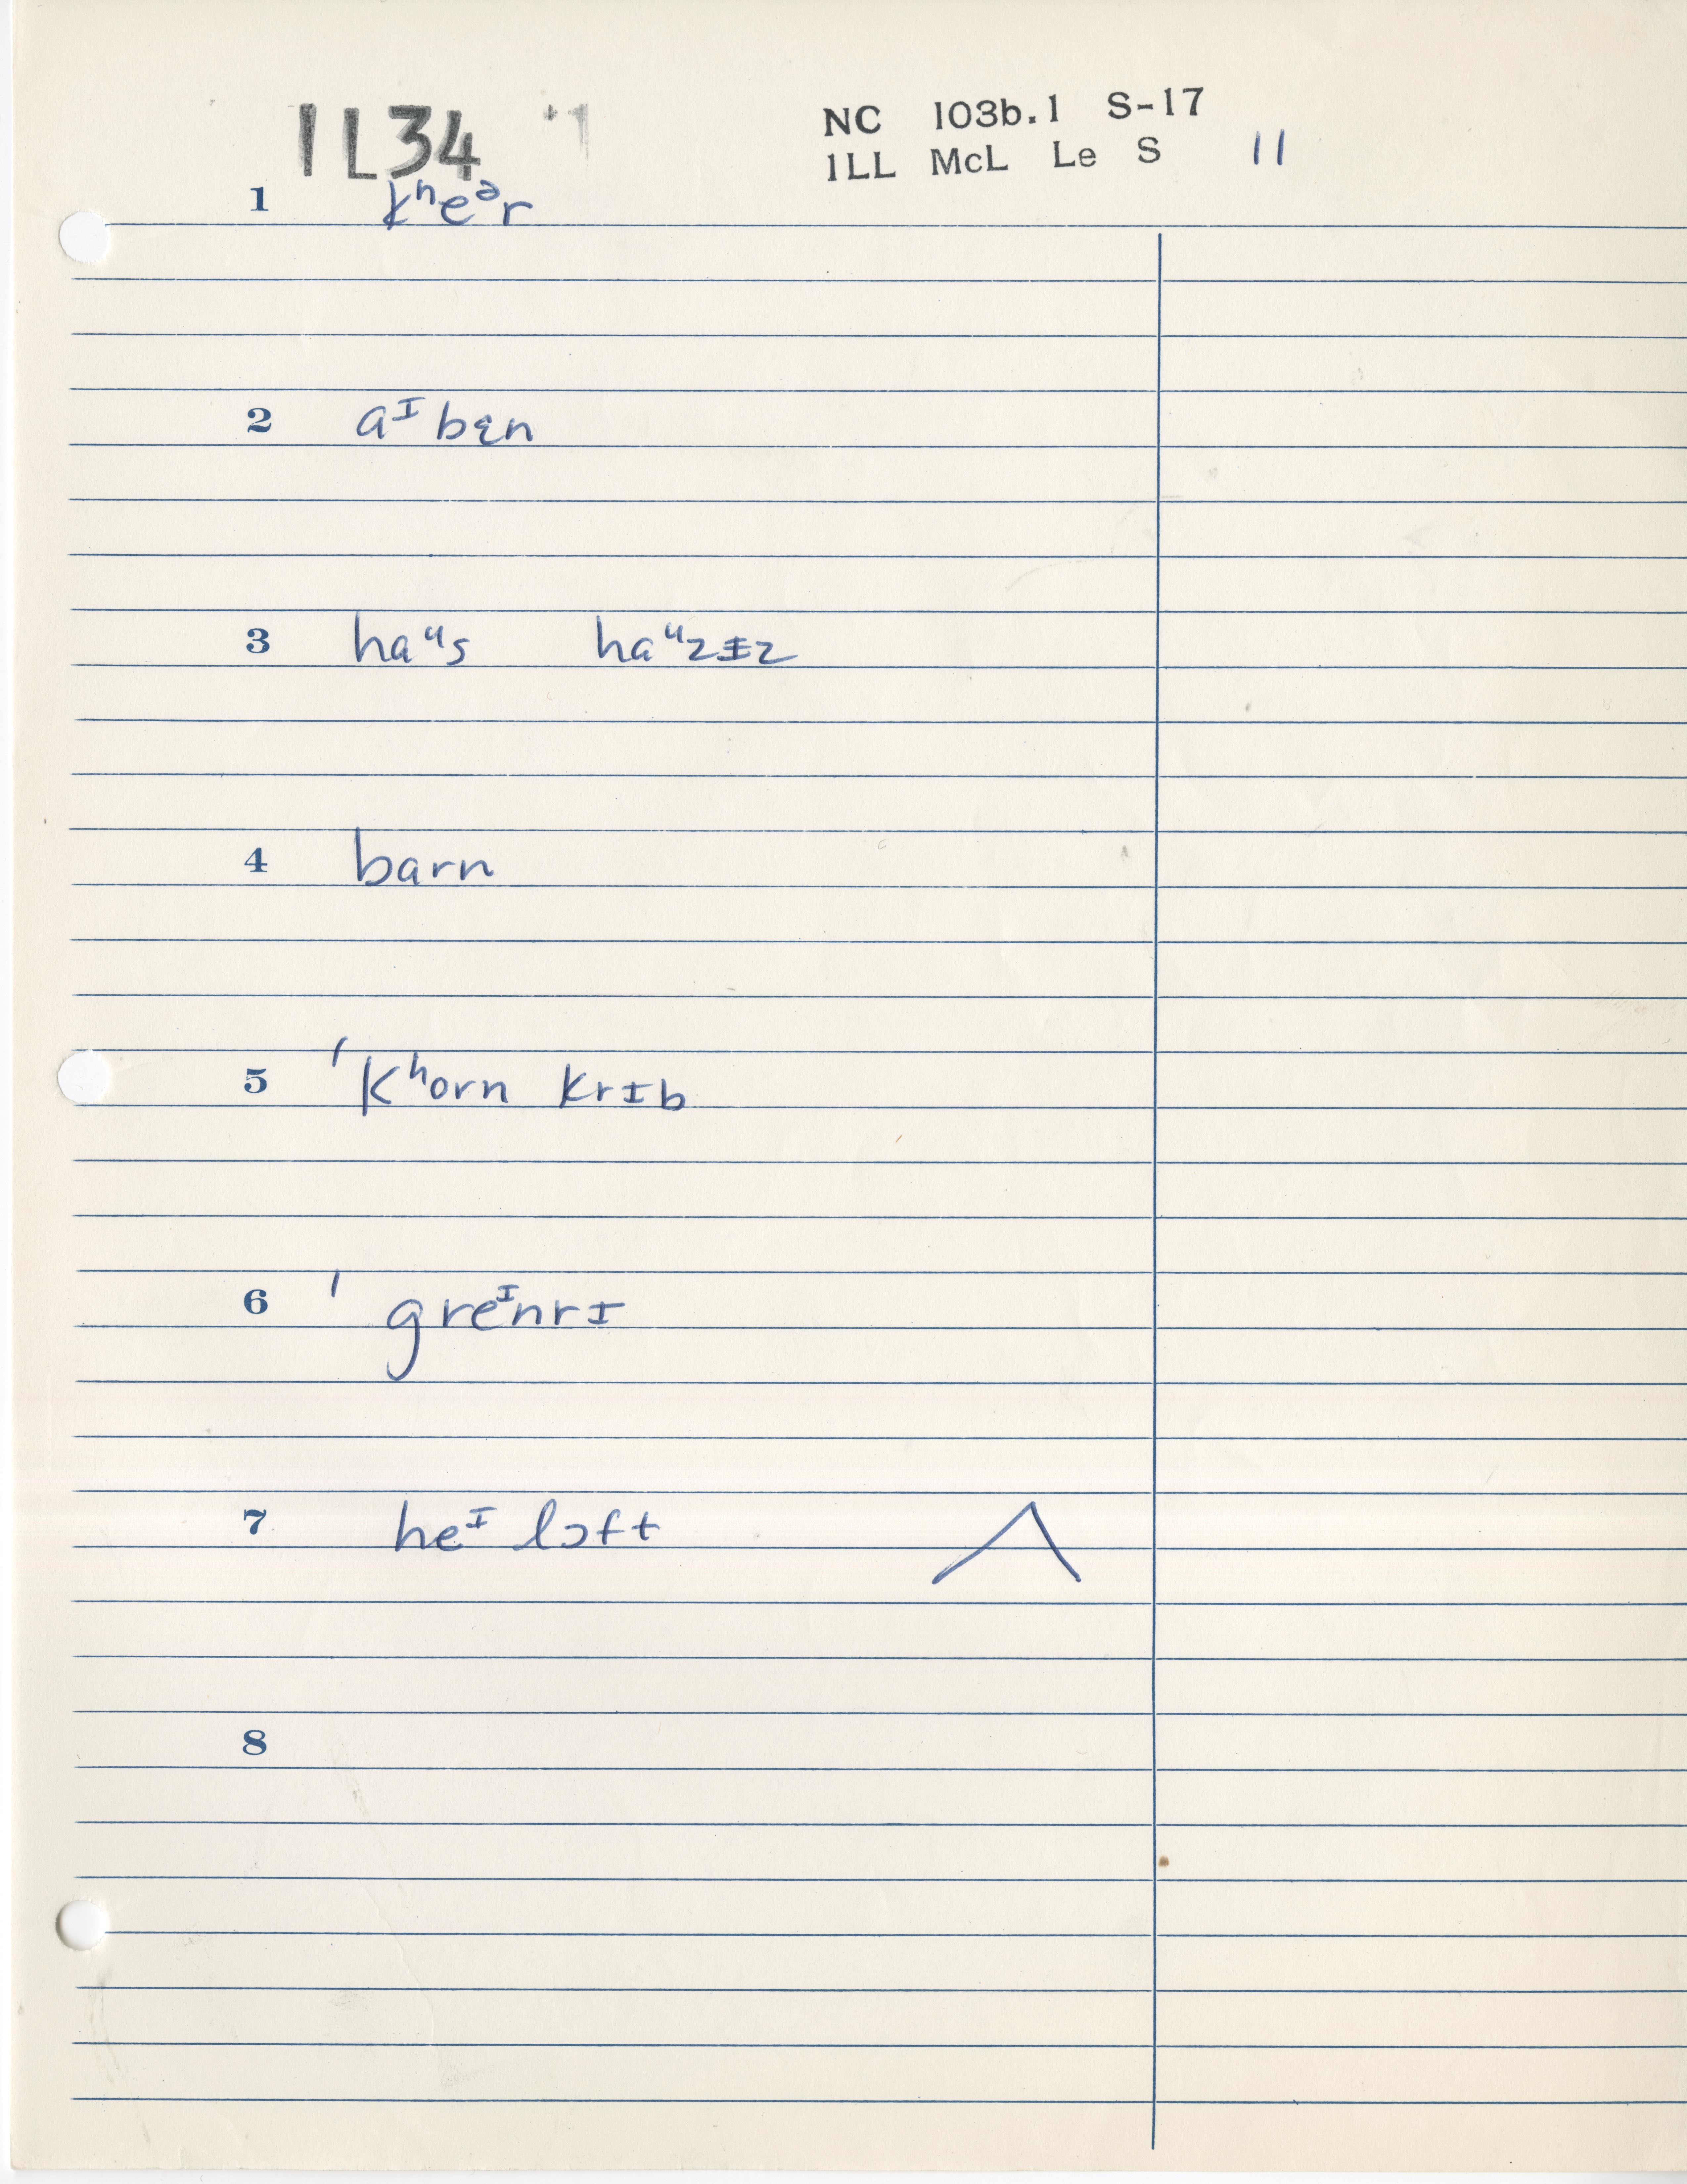 IL34 '1
NC 103b.1 S-17
ILL McL Le S 11
1 kʰeᵊr
2 aᶦ bɛn
3 haᵘs haᵘzɨz
4 barn
5 ˈkʰorn krɪb
6 ˈgreᶦnrɪ
7 heᶦ lɔft ʌ
8